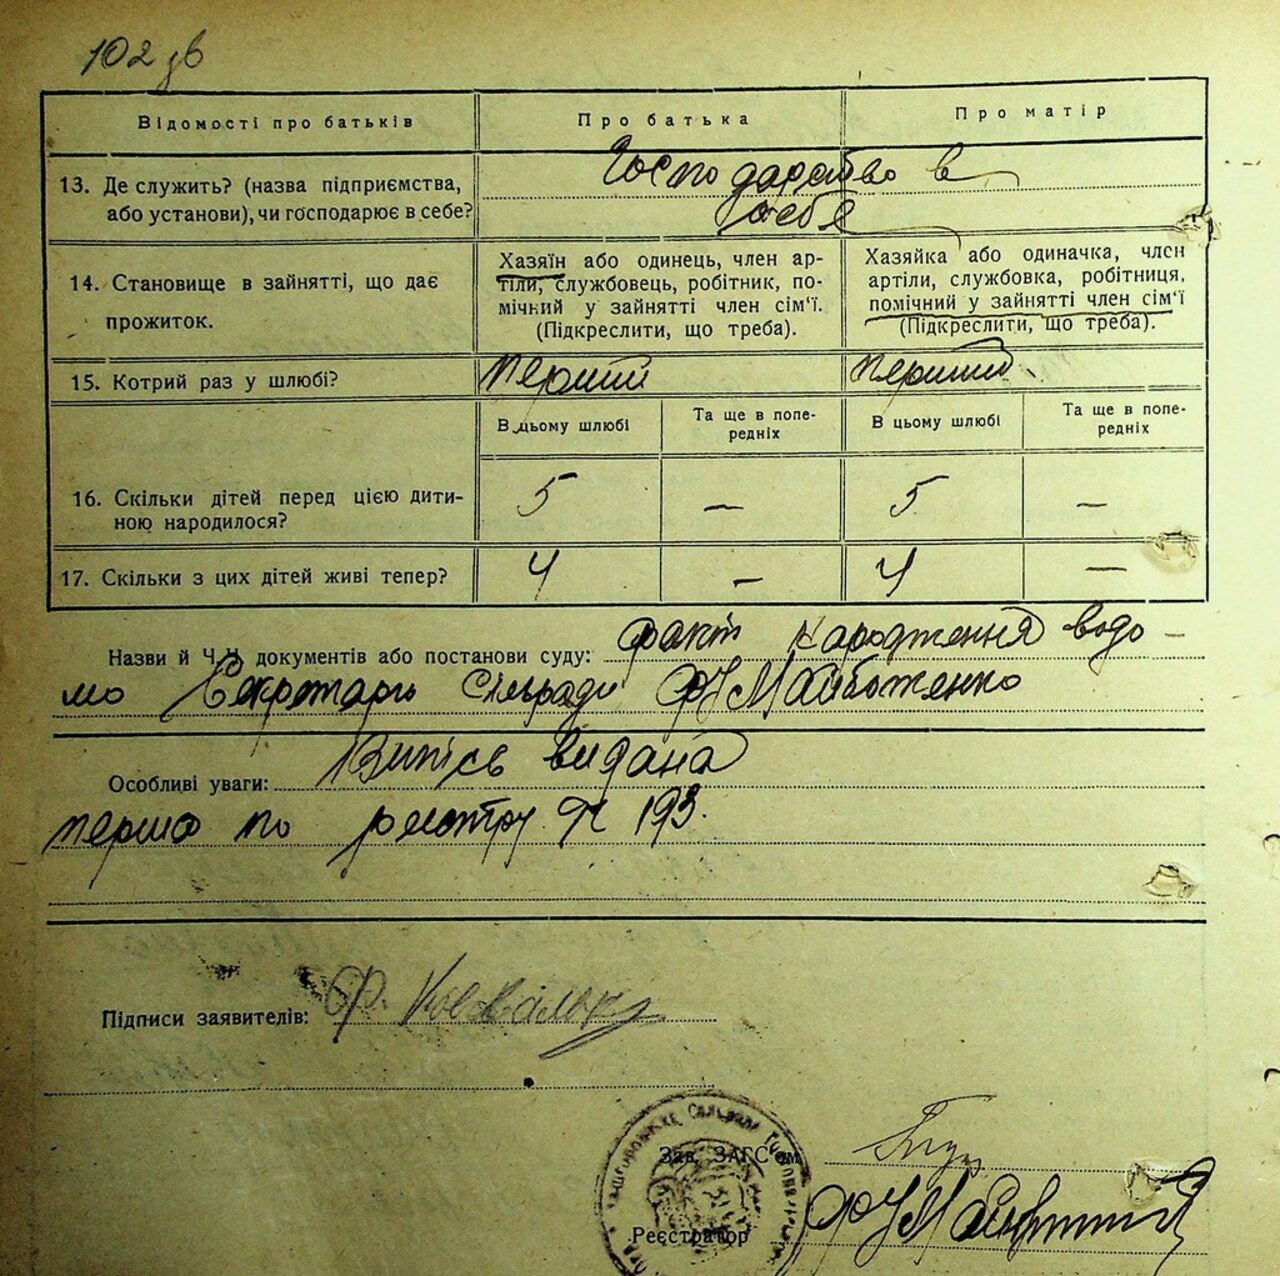 102 зв
Відомості про батьків
Про батька
Про матір
13. Де служить? (назва підприємства,
або установи), чи господарює в себе?
Господарство в
себе
14. Становище в зайнятті, що дає
прожиток.
Хазяїн або одинець, член ар-
тіли, службовець, робітник, по-
мічний у зайнятті член сім'ї.
(Підкреслити, що треба).
Хазяйка або одиначка, член
артіли, службовка, робітниця,
помічний у зайнятті член сім'ї
(Підкреслити, що треба).
15. Котрий раз у шлюбі?
перший
перший
В цьому шлюбі
Та ще в попе-
редніх
В цьому шлюбі
Та ще в попе-
редніх
16. Скільки дітей перед цією дити-
ною народилося?
5 — 5 —
17. Скільки з цих дітей живі тепер?
4 — 4 —
Назви й Ч.Ч. документів або постанови суду: факт народження відо-
мо Секретарю Сільради Майбоженко
Особливі уваги: Випись видана
перша по реєстру № 193.
Підписи заявителів: Ф. Коваленко
Зав. ЗАГС'ом
Реєстратор